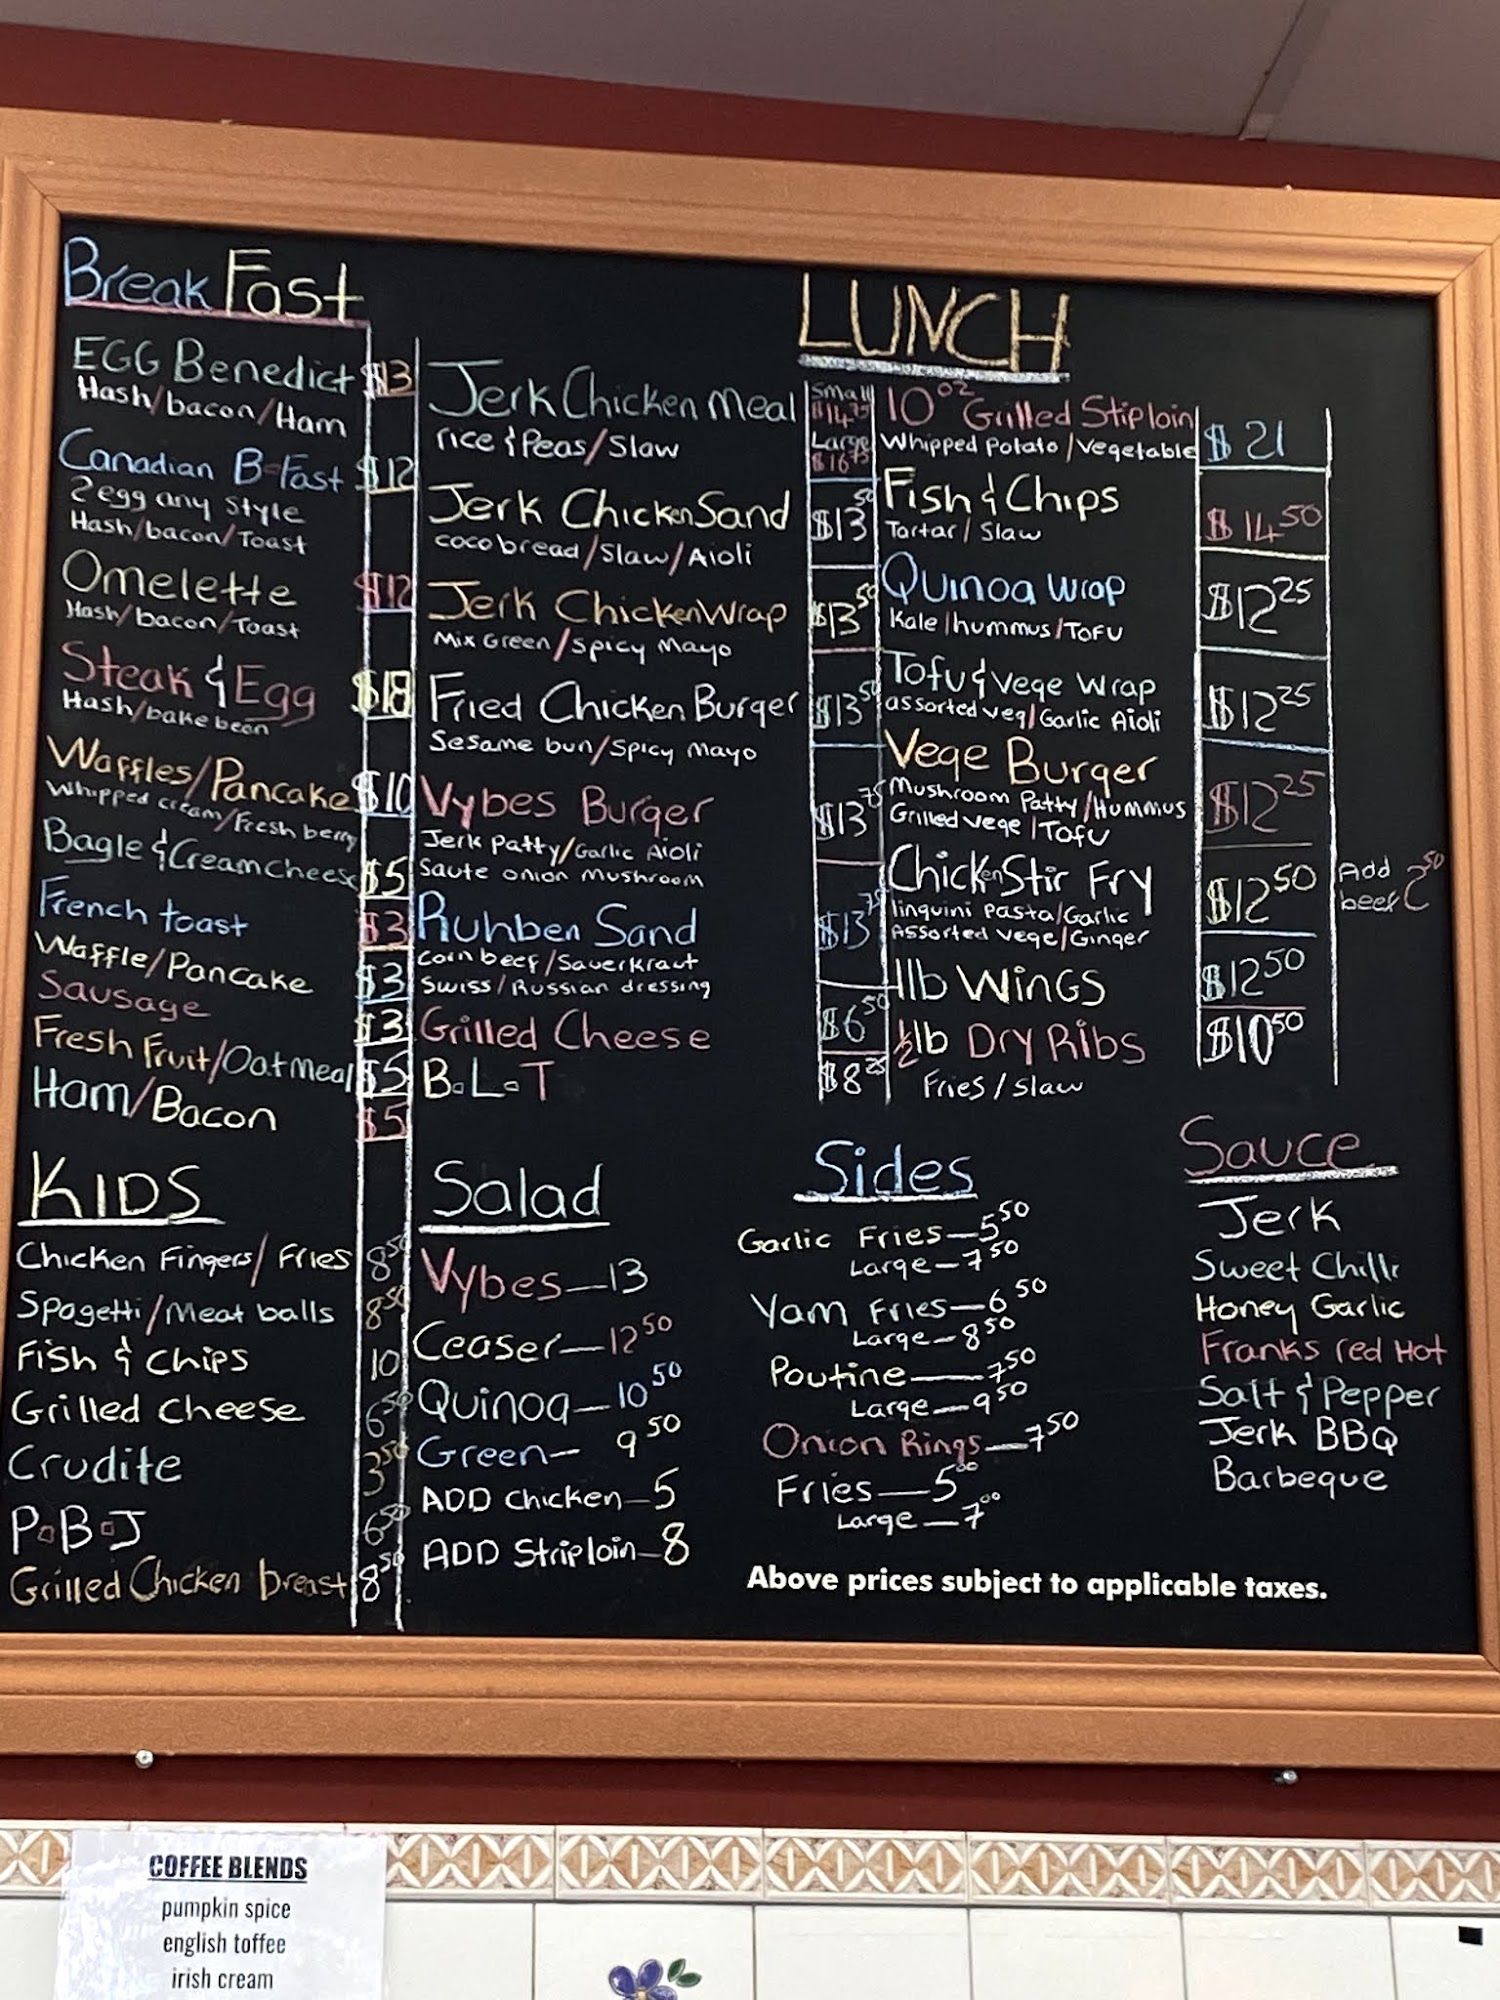 BreakFast
EGG Benedict $13
Hash/bacon/Ham
Canadian B-Fast $12
2 egg any Style
Hash/bacon/Toast
Omelette $12
Hash/bacon/Toast
Steak & Egg $18
Hash/bake bean
Waffles/Pancake $10
Whipped cream/Fresh berry
Bagle & Cream cheese $5
French toast $3
Waffle/Pancake $3
Sausage $3
Fresh Fruit/Oatmeal $5
Ham/Bacon $5
LUNCH
Jerk Chicken Meal Small $14.75
rice & Peas/Slaw Large $16.75
Jerk Chicken Sand $13.50
coco bread/Slaw/Aioli
Jerk Chicken Wrap $13.50
Mix Green/Spicy Mayo
Fried Chicken Burger $13.50
Sesame bun/Spicy Mayo
Vybes Burger $13.75
Jerk Patty/Garlic Aioli
Saute onion mushroom
Ruhben Sand $13.75
Corn beef/Sauerkraut
Swiss/Russian dressing
Grilled Cheese $6.50
B.L.T $8.25
10oz Grilled Stiploin $21
Whipped Potato/Vegetable
Fish & Chips $14.50
Tartar/Slaw
Quinoa Wrap $12.25
Kale/hummus/TOFU
Tofu & Vege Wrap $12.25
assorted veg/Garlic Aioli
Vege Burger $12.25
Mushroom Patty/Hummus
Grilled vege/Tofu
Chicken Stir Fry $12.50 Add beef 2.50
linguini Pasta/Garlic
Assorted Vege/Ginger
1lb WINGS $12.50
1/2lb DRY RIBS $10.50
Fries/Slaw
KIDS
Chicken Fingers/Fries 8.50
Spagetti/Meat balls 8.50
Fish & Chips 10
Grilled Cheese 6.50
Crudite 3.50
P.B.J 6.50
Grilled Chicken breast 8.50
Salad
Vybes—13
Ceaser—12.50
Quinoa—10.50
Green— 9.50
ADD Chicken—5
ADD Striploin—8
Sides
Garlic Fries—5.50
Large—7.50
Yam Fries—6.50
Large—8.50
Poutine—7.50
Large—9.50
Onion Rings—7.50
Fries—5.00
Large—7.00
Sauce
Jerk
Sweet Chilli
Honey Garlic
Franks red Hot
Salt & Pepper
Jerk BBQ
Barbeque
Above prices subject to applicable taxes.
COFFEE BLENDS
pumpkin spice
english toffee
irish cream